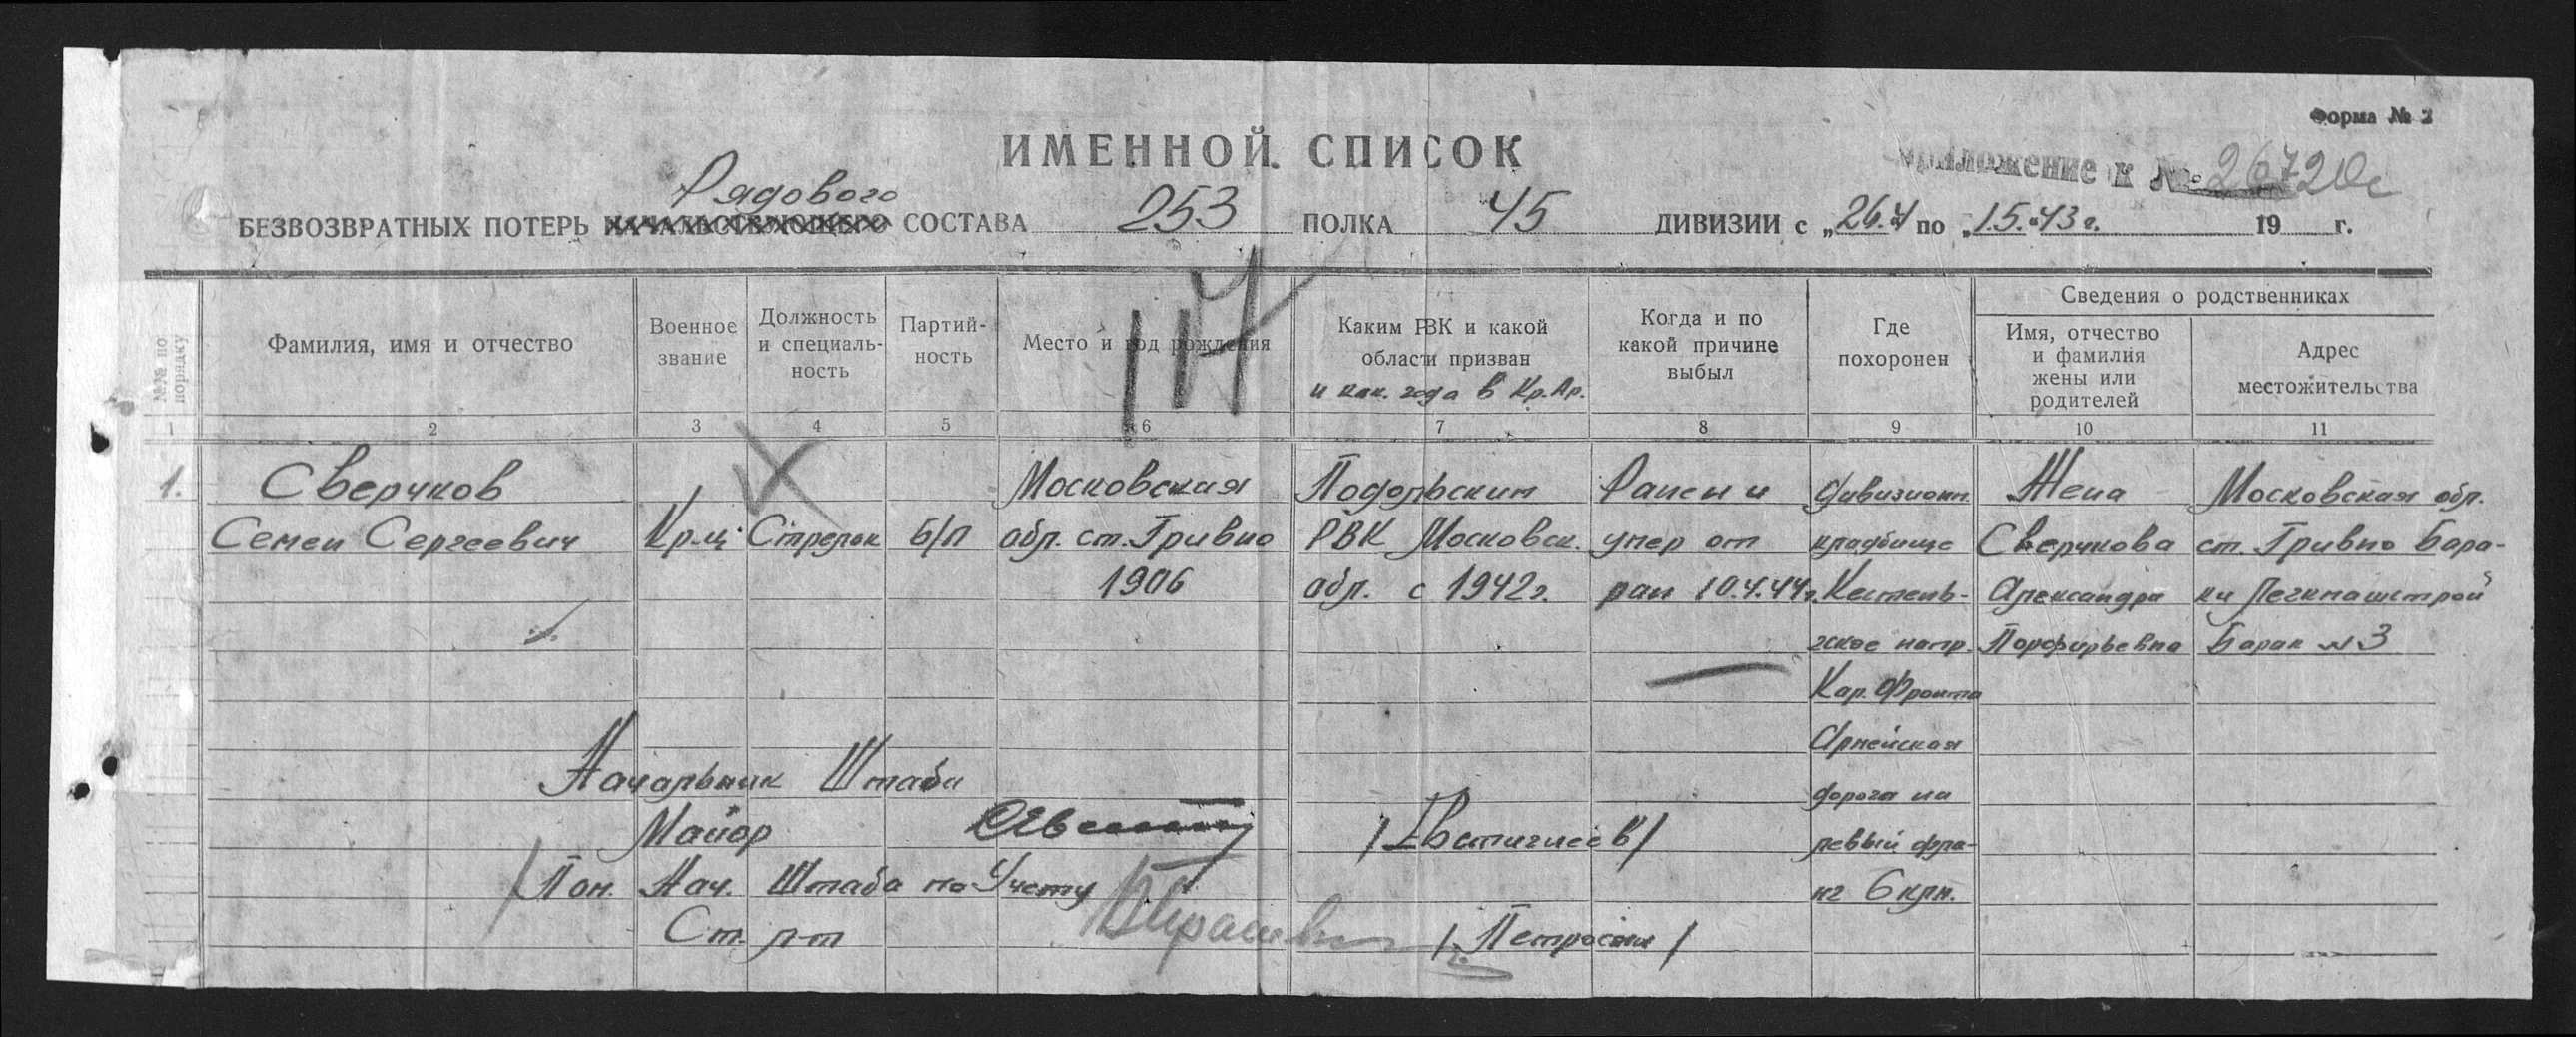 Форма № 2
ИМЕННОЙ СПИСОК
Приложение к № 26720с
Рядового
БЕЗВОЗВРАТНЫХ ПОТЕРЬ НАЧАЛЬСТВУЮЩЕГО СОСТАВА 253 ПОЛКА 45 ДИВИЗИИ с „26.4 по „1.5.43г. 19 г.
№№ по порядку
Фамилия, имя и отчество
Военное звание
Должность и специаль-ность
Партий-ность
Место и год рождения
Каким РВК и какой области призван
и как. года в Кр.Ар.
Когда и по какой причине выбыл
Где похоронен
Сведения о родственниках
Имя, отчество и фамилия жены или родителей
Адрес местожительства
1 2 3 4 5 6 7 8 9 10 11
1. Сверчков Московская Подольским Ранен и дивизионн. Жена Московская обл.
Семен Сергеевич Кр-ц Стрелок б/п обл. ст. Гривно РВК Московск. умер от кладбище Сверчкова ст. Гривно Бара-
1906 обл. с 1942г. ран 10.4.44г. Кестень- Александра ки Легкмашстрой
гское напр. Порфирьевна Барак №3
Кар. Фронта
Армейская
Начальник Штаба дорога на
Майор /Евстигнеев/ левый фла-
Пом. Нач. Штаба по Учету нг 6 клм.
Ст. л-т /Петросян/